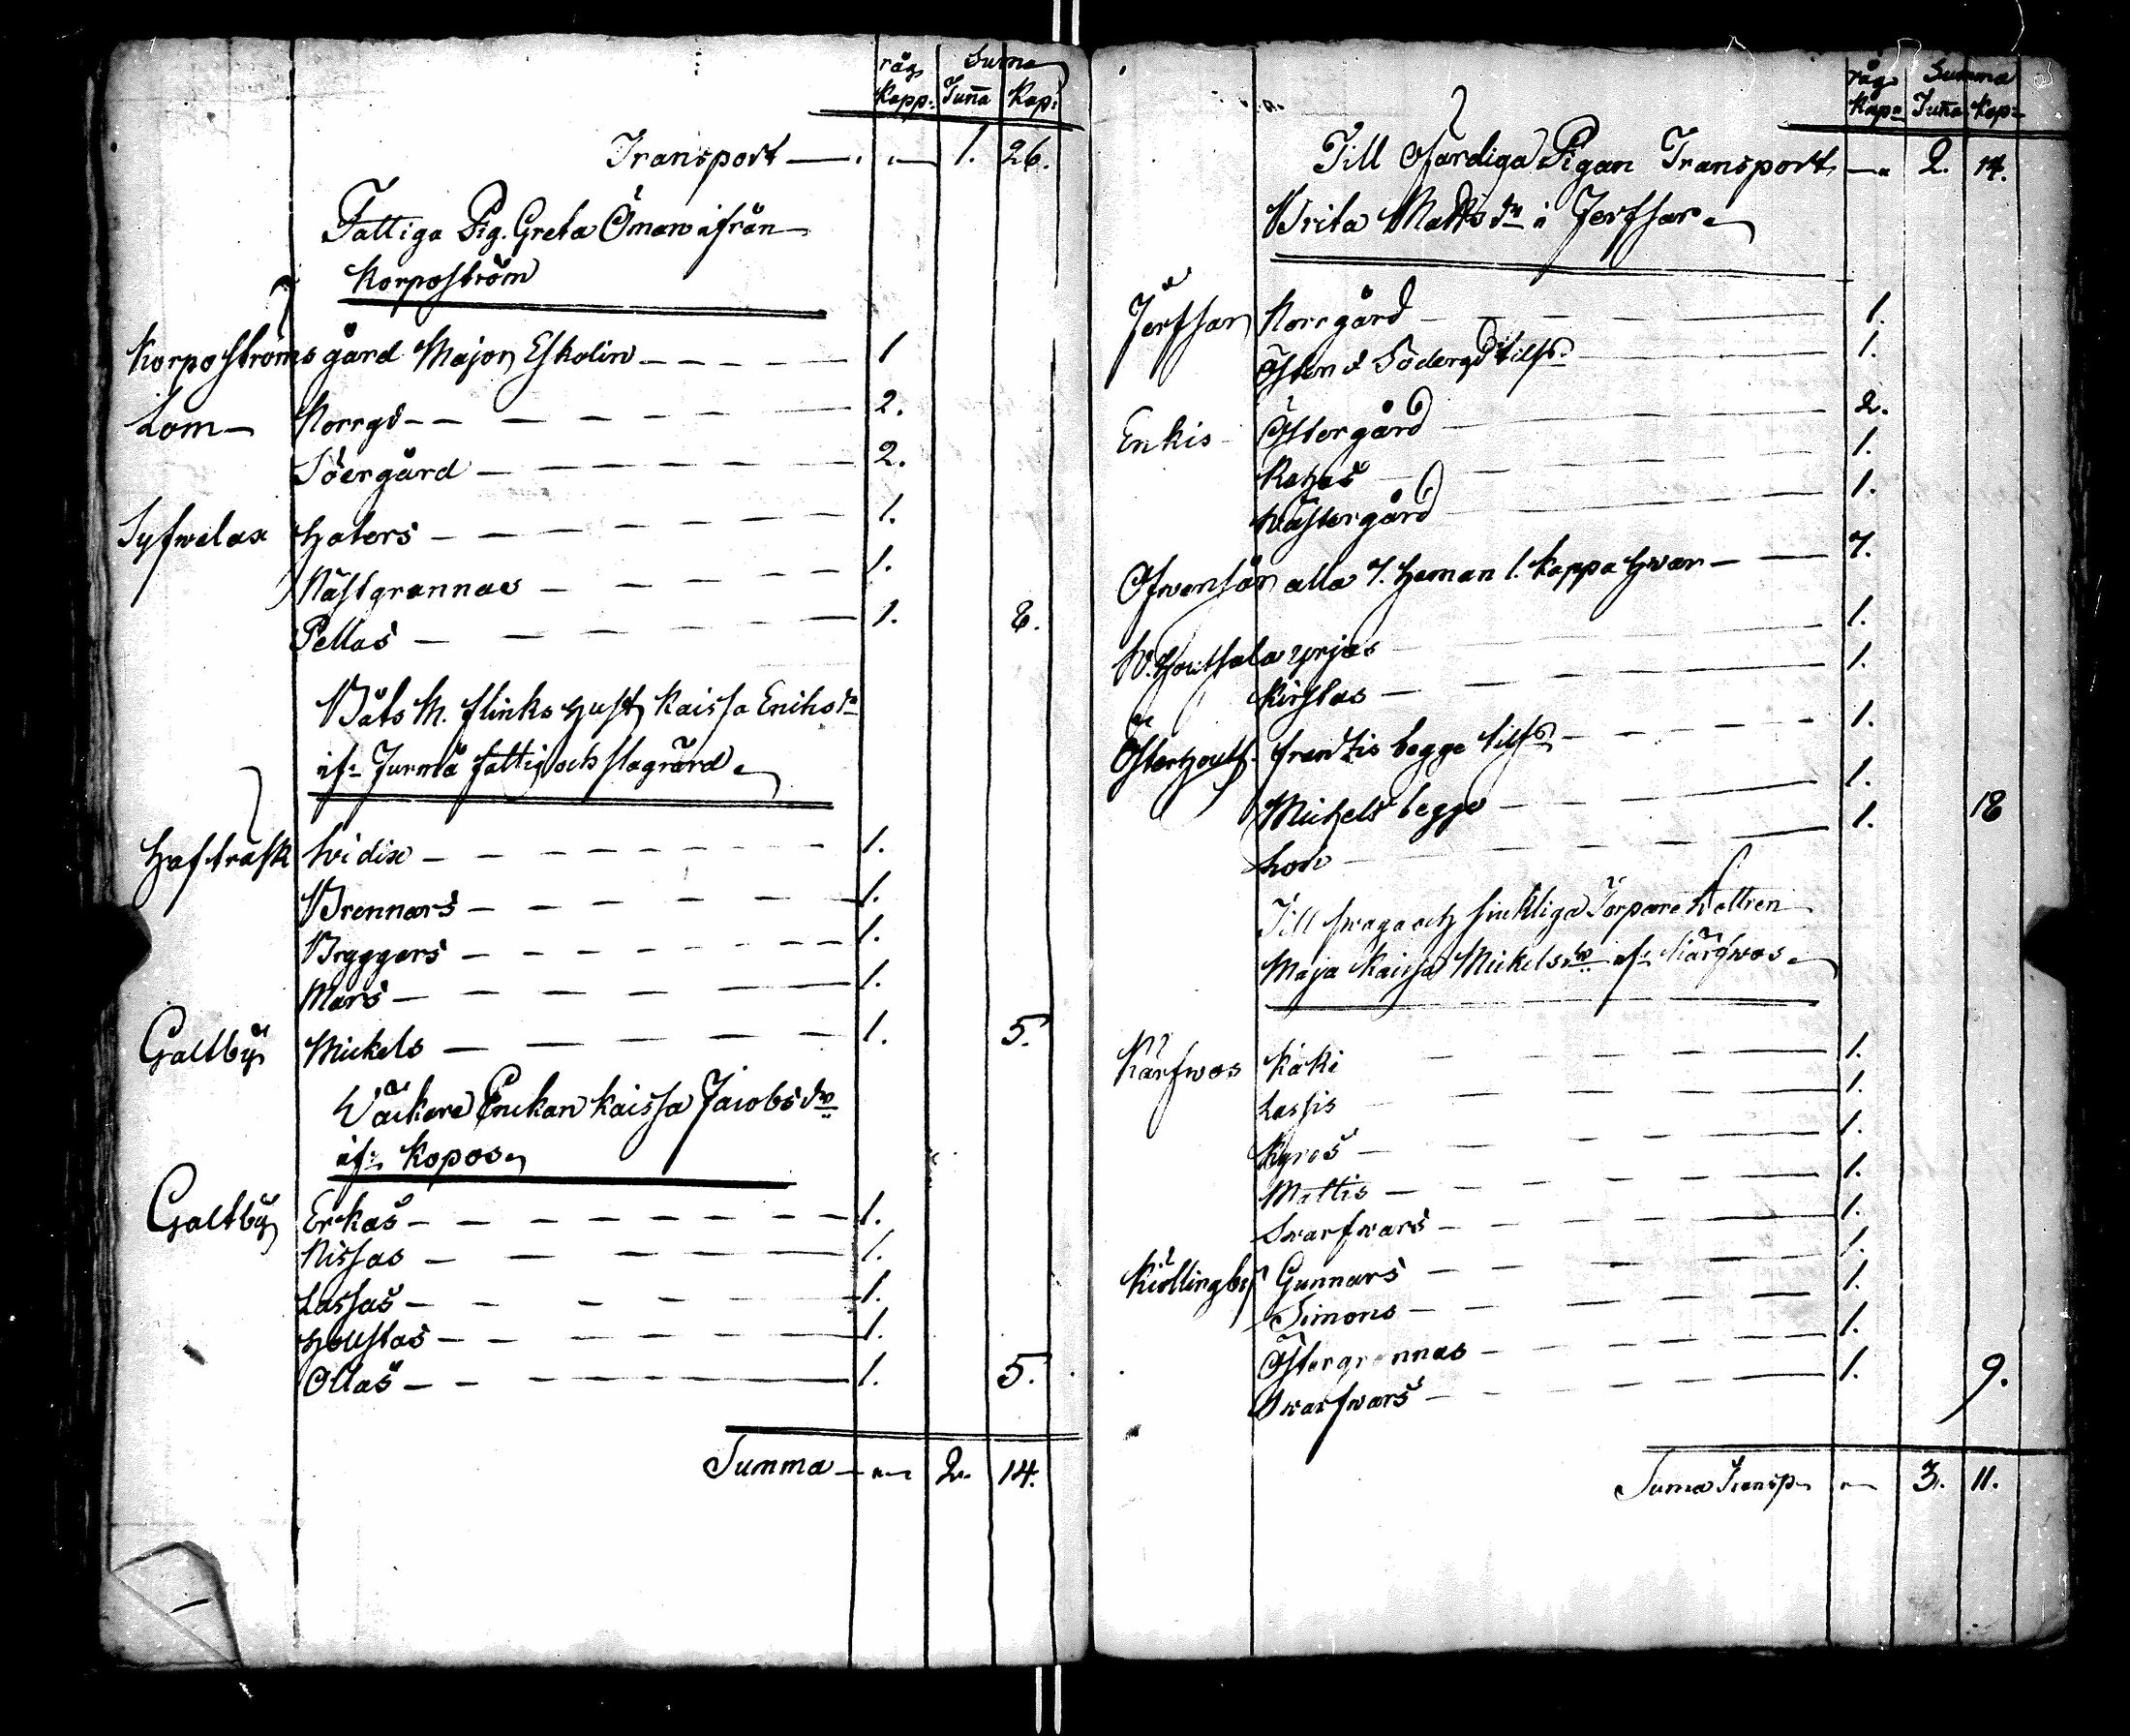 råg Summa
Kapp: Tuña Kap:
Transport — . „ 1. 26.
Fattiga Pig. Greta Öman ifrån
Korpoström
Korpoströms gård Major Eskolin — 1
Lom — Norrgd — 2.
Söergård — 2.
Syfwelax Haters — 1.
Nästgrannas — 1.
Pellas — 1. 8.
Båts M. Flinks Hust. Kaissa Eriks dr
if: Jurmå fattig och
Haftrask Widix — 1.
Brennars — 1.
Bryggars — 1.
Mars — 1.
Galtby Mickels — 1. 5.
Enckan Kaissa Jacobs dr
if: Kopos
Galtby Erkas — 1.
Nissas — 1.
Lassas — 1.
Holstas — 1.
Ollas — 1. 5.
Summa — „ 2. 14.
råg Summa
Kap: Tuña Kap:
Till Ofärdiga Pigan Transport — „ 2. 14.
Brita Matts dr i Jerfsar
Jerfsar Norrgård — 1.
Öster & Södergd tills: — 1.
Enkis Östergård — 2.
Rahas — 1.
Wästergård — 1.
Ofwensår alla 7. Heman 1. Kappa Hwar — 7.
W. Houtsala Yrjas — 1.
Kirstas — 1.
Österhouts. Frantzis begge tills: — 1.
Michels begge — 1.
— 1. 18
Till swaga och siukliga Torpare
Maja Kaisa Mickels dr if: Kärfwas
Kärfwas Käki — 1.
Lassis — 1.
Kyros — 1.
Mattis — 1.
Swarfwars — 1.
Kiöllingby Gunnars — 1.
Simons — 1.
Östergrannas — 1.
Swarfwars — 1. 9.
Suma Transp — „ 3. 11.